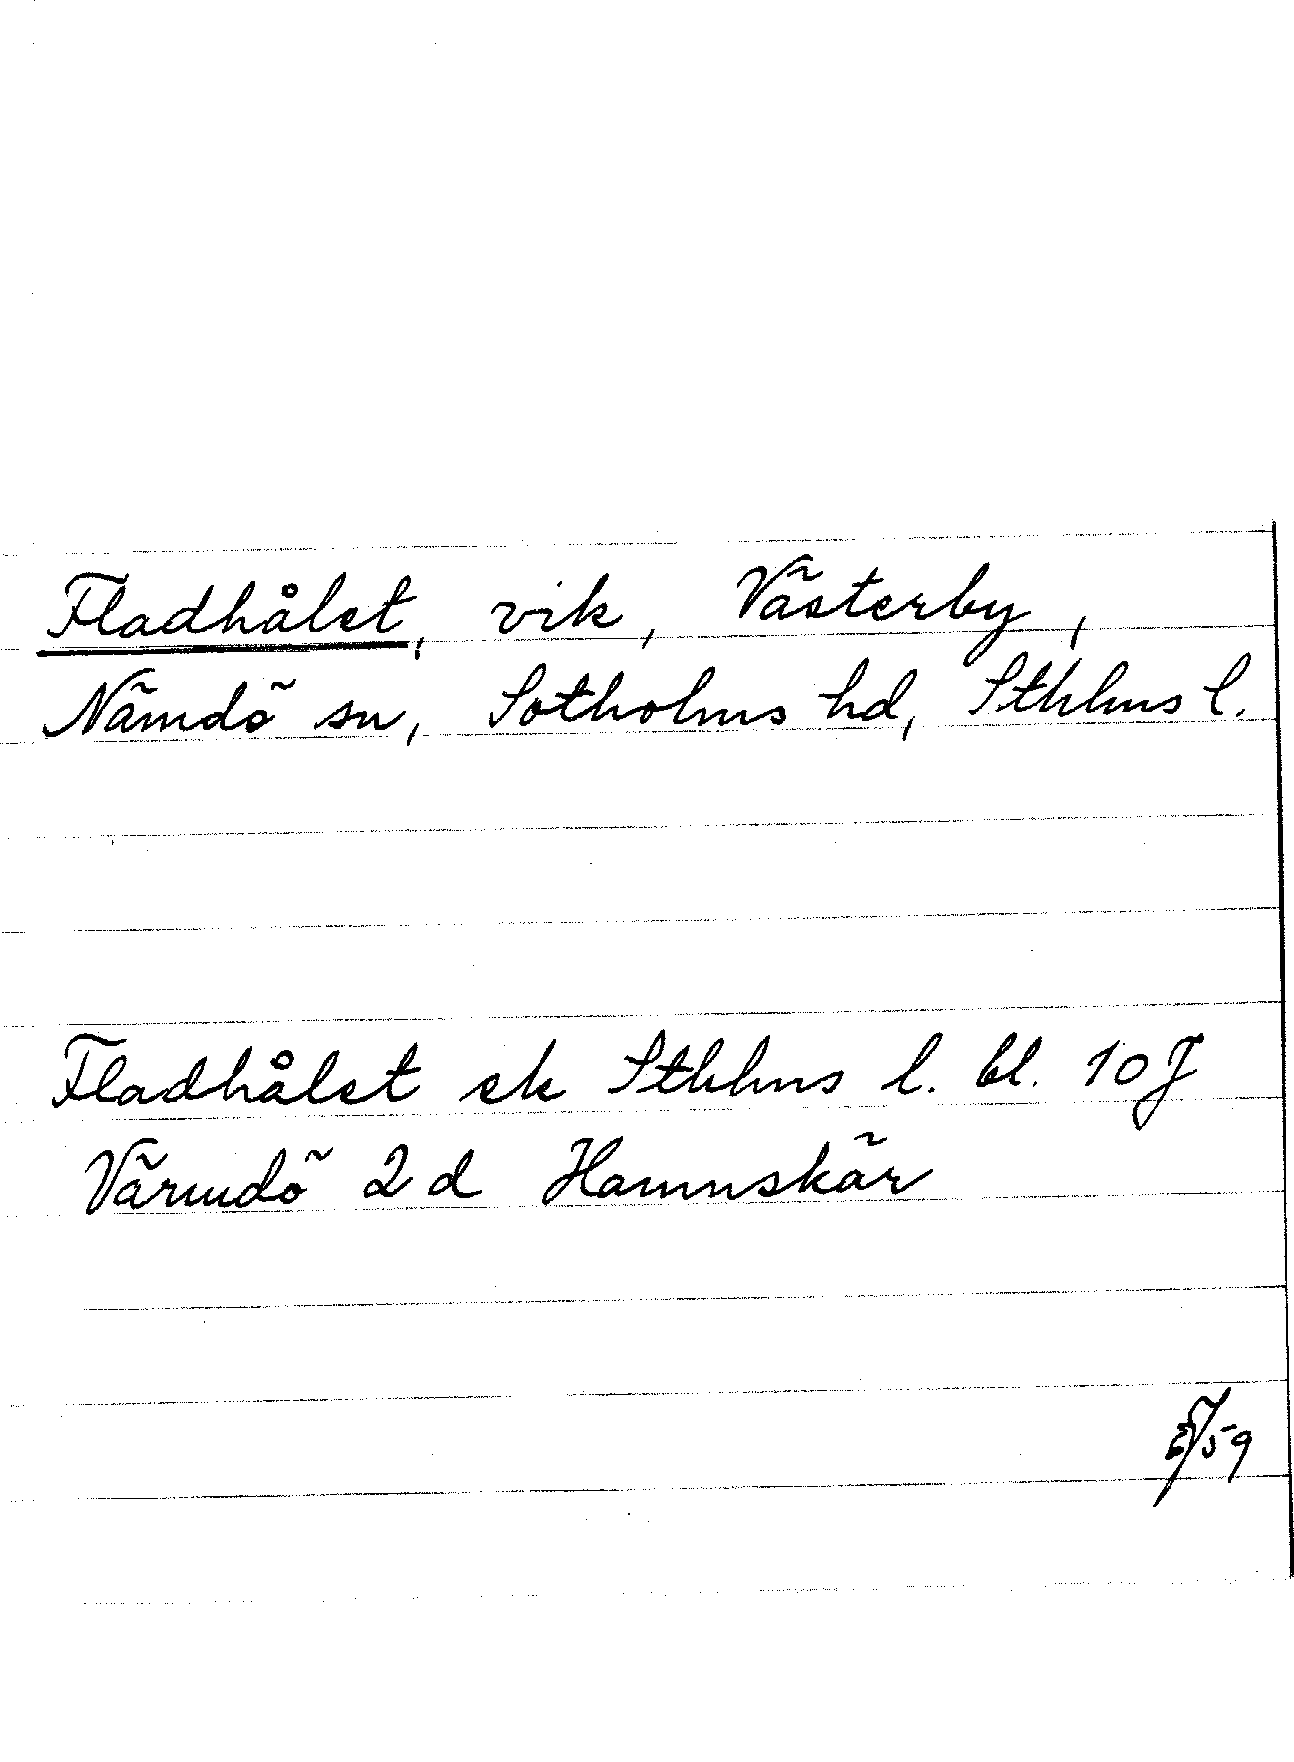 Fladhålet, vik, Västerby,
Nämdö sn, Sotholms hd, Sthlms l.
Fladhålet ek Sthlms l. bl. 10 J
Värmdö 2 d Hamnskär
/59